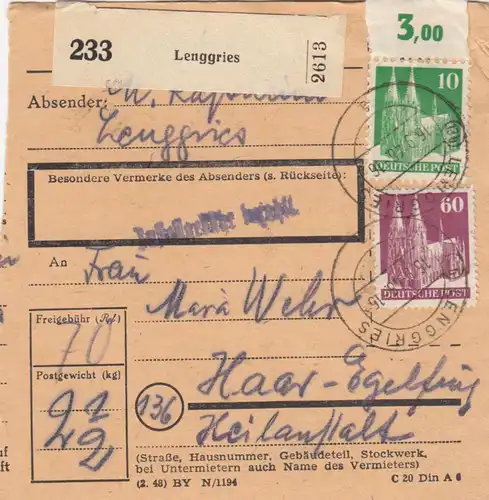 3,00
233 Lenggries 2613
Absender: M.
Lenggries
10
DEUTSCHE POST
Besondere Vermerke des Absenders (s. Rückseite):
60
DEUTSCHE POST
LENGGRIES
Zustellgebühr bezahlt
An Frau
Maria Wehr
Freigebühr (Rpf)
70
Postgewicht (kg)
Haar-Egelfing
(13b) Heilanstalt
(Straße, Hausnummer, Gebäudeteil, Stockwerk,
bei Untermietern auch Name des Vermieters)
(2. 48) BY N/1194 C 20 Din A 6